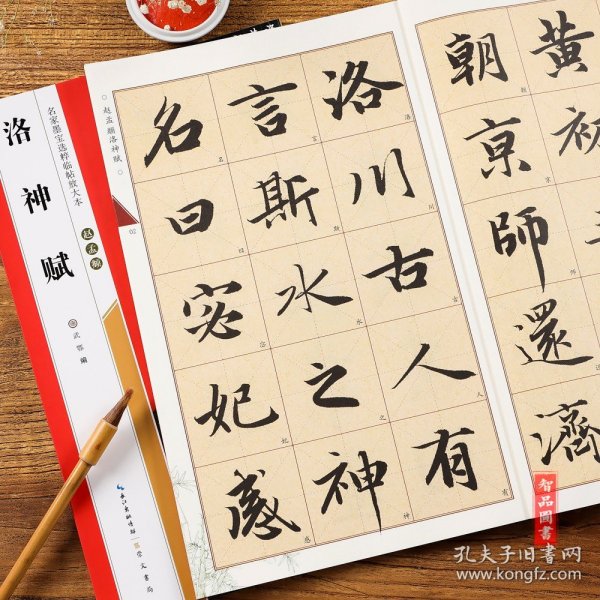 黄初
朝京師還濟
洛川古人有
言斯水之神
名曰宓妃感
赵孟頫洛神赋
02
名家墨宝选粹临帖放大本
洛神赋
赵孟頫
武鄂 编
长江出版传媒
崇文书局
智品圖書
孔夫子旧书网
www.kongfz.com